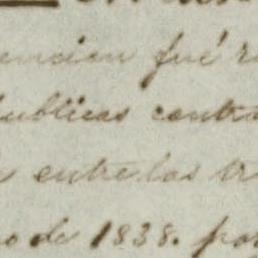 encion fué r
ublicas contra
entre las tr
o de 1838. por